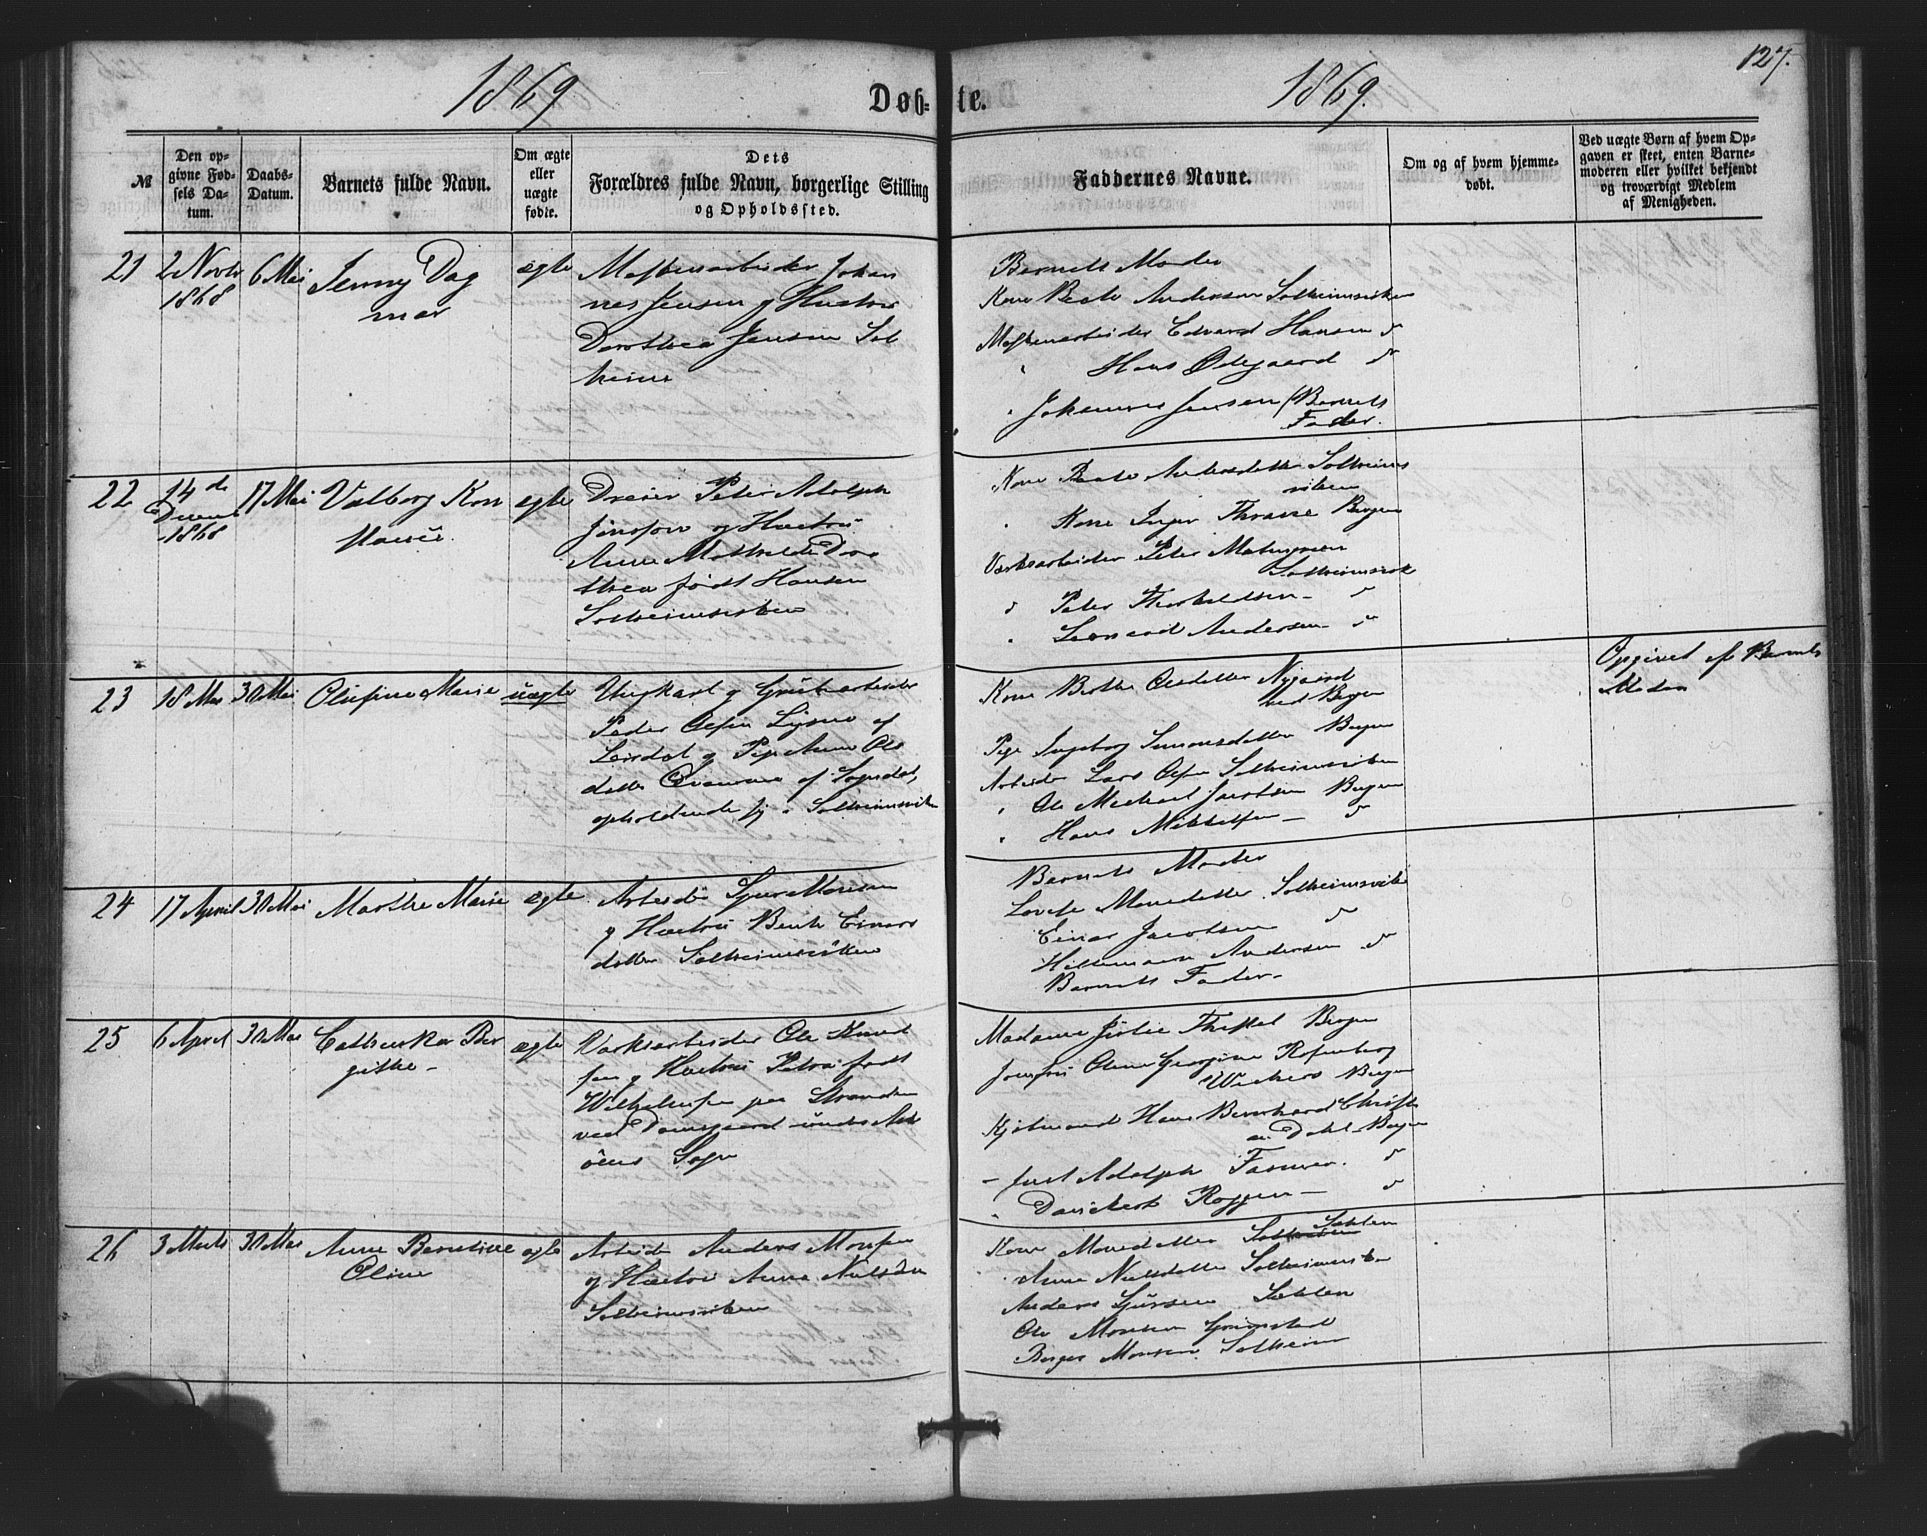 1869
Døb-
te.
1869.
127.
№
Den op-
givne Fød-
sels Da-
tum.
Daabs-
Datum.
Barnets fulde Navn.
Om ægte
eller
uægte
fødte.
Dets
Forældres fulde Navn, borgerlige Stilling
og Opholdssted.
Faddernes Navne.
Om og af hvem hjemme-
døbt.
Ved uægte Børn af hvem Op-
gaven er skeet, enten Barne-
moderen eller hvilket bekjendt
og troværdigt Medlem
af Menigheden.
21
2 Novbr
1868
6 Mai
Jenny Dag
mar
ægte
Maskinarbeider Johan
nes Jensen og Hustru
Dorothea Jensen Sol
heim
Barnets Moder
Kone Beate Andersen Solheimsviken
Maskinarbeider Edvard Hansen
Hans Ødegaard
Johannes Jensen (Barnets
Fader.
22
14de
1868
17 Mai
Valborg
ægte
Dreier Peter Adolph
og Hustru
Anne Mathilde Doro
thea født Hansen
Solheimsviken
Kone Beate Solheims
viken
Kone Inger Bergen
Værksarbeider Peter
Solheimsvik
Peter
Andersen
23
18 Mai
30 Mai
Olufine Marie
uægte
Ungkarl og Grubearbeider
Peder Olsen af
Leirdal og Pige Anne Ols
datter af Sogndal,
opholdende sig i Solheimsviken
Kone Berthe Olsdatter Nygaard
ved Bergen
Pige Ingeborg Simonsdatter Bergen
Arbeider Lars Olsen Solheimsviken
Ole Michael Jacobsen Bergen
Hans Mikkelsen
Opgivet af Barnets
Moder
24
17 April
30 Mai
Marthe Marie
ægte
Arbeider Sjur Monsen
og Hustru Berthe Einars
datter Solheimsviken
Barnets Moder
Monsdatter Solheimsviken
Einar Jacobsen
Andersen
Barnets Fader
25
6 April
30 Mai
Cathinka Bir
gitte
ægte
Værksarbeider Ole Knud
sen og Hustru Petra født
Wilhelmsen paa Stranden
ved Damsgaard under Ask
øens Sogn
Madame Julie Bergen
Jomfru Oline Georgine Rosenberg
Bergen
Kjøbmand Hans Bernhard Christi
an Dahl Bergen
Just Adolph Fasmer
Roggen
26
3 Marts
30 Mai
Anne Berntine
Oline
ægte
Arbeider Anders Monsen
og Hustru Anne Nielsdtr
Solheimsviken
Kone Monsdatter
Sælen
Anne Nielsdatter Solheimsvik
Anders Sjursen Sælen
Ole Monsen Grimstad
Børge Monsen Solheim